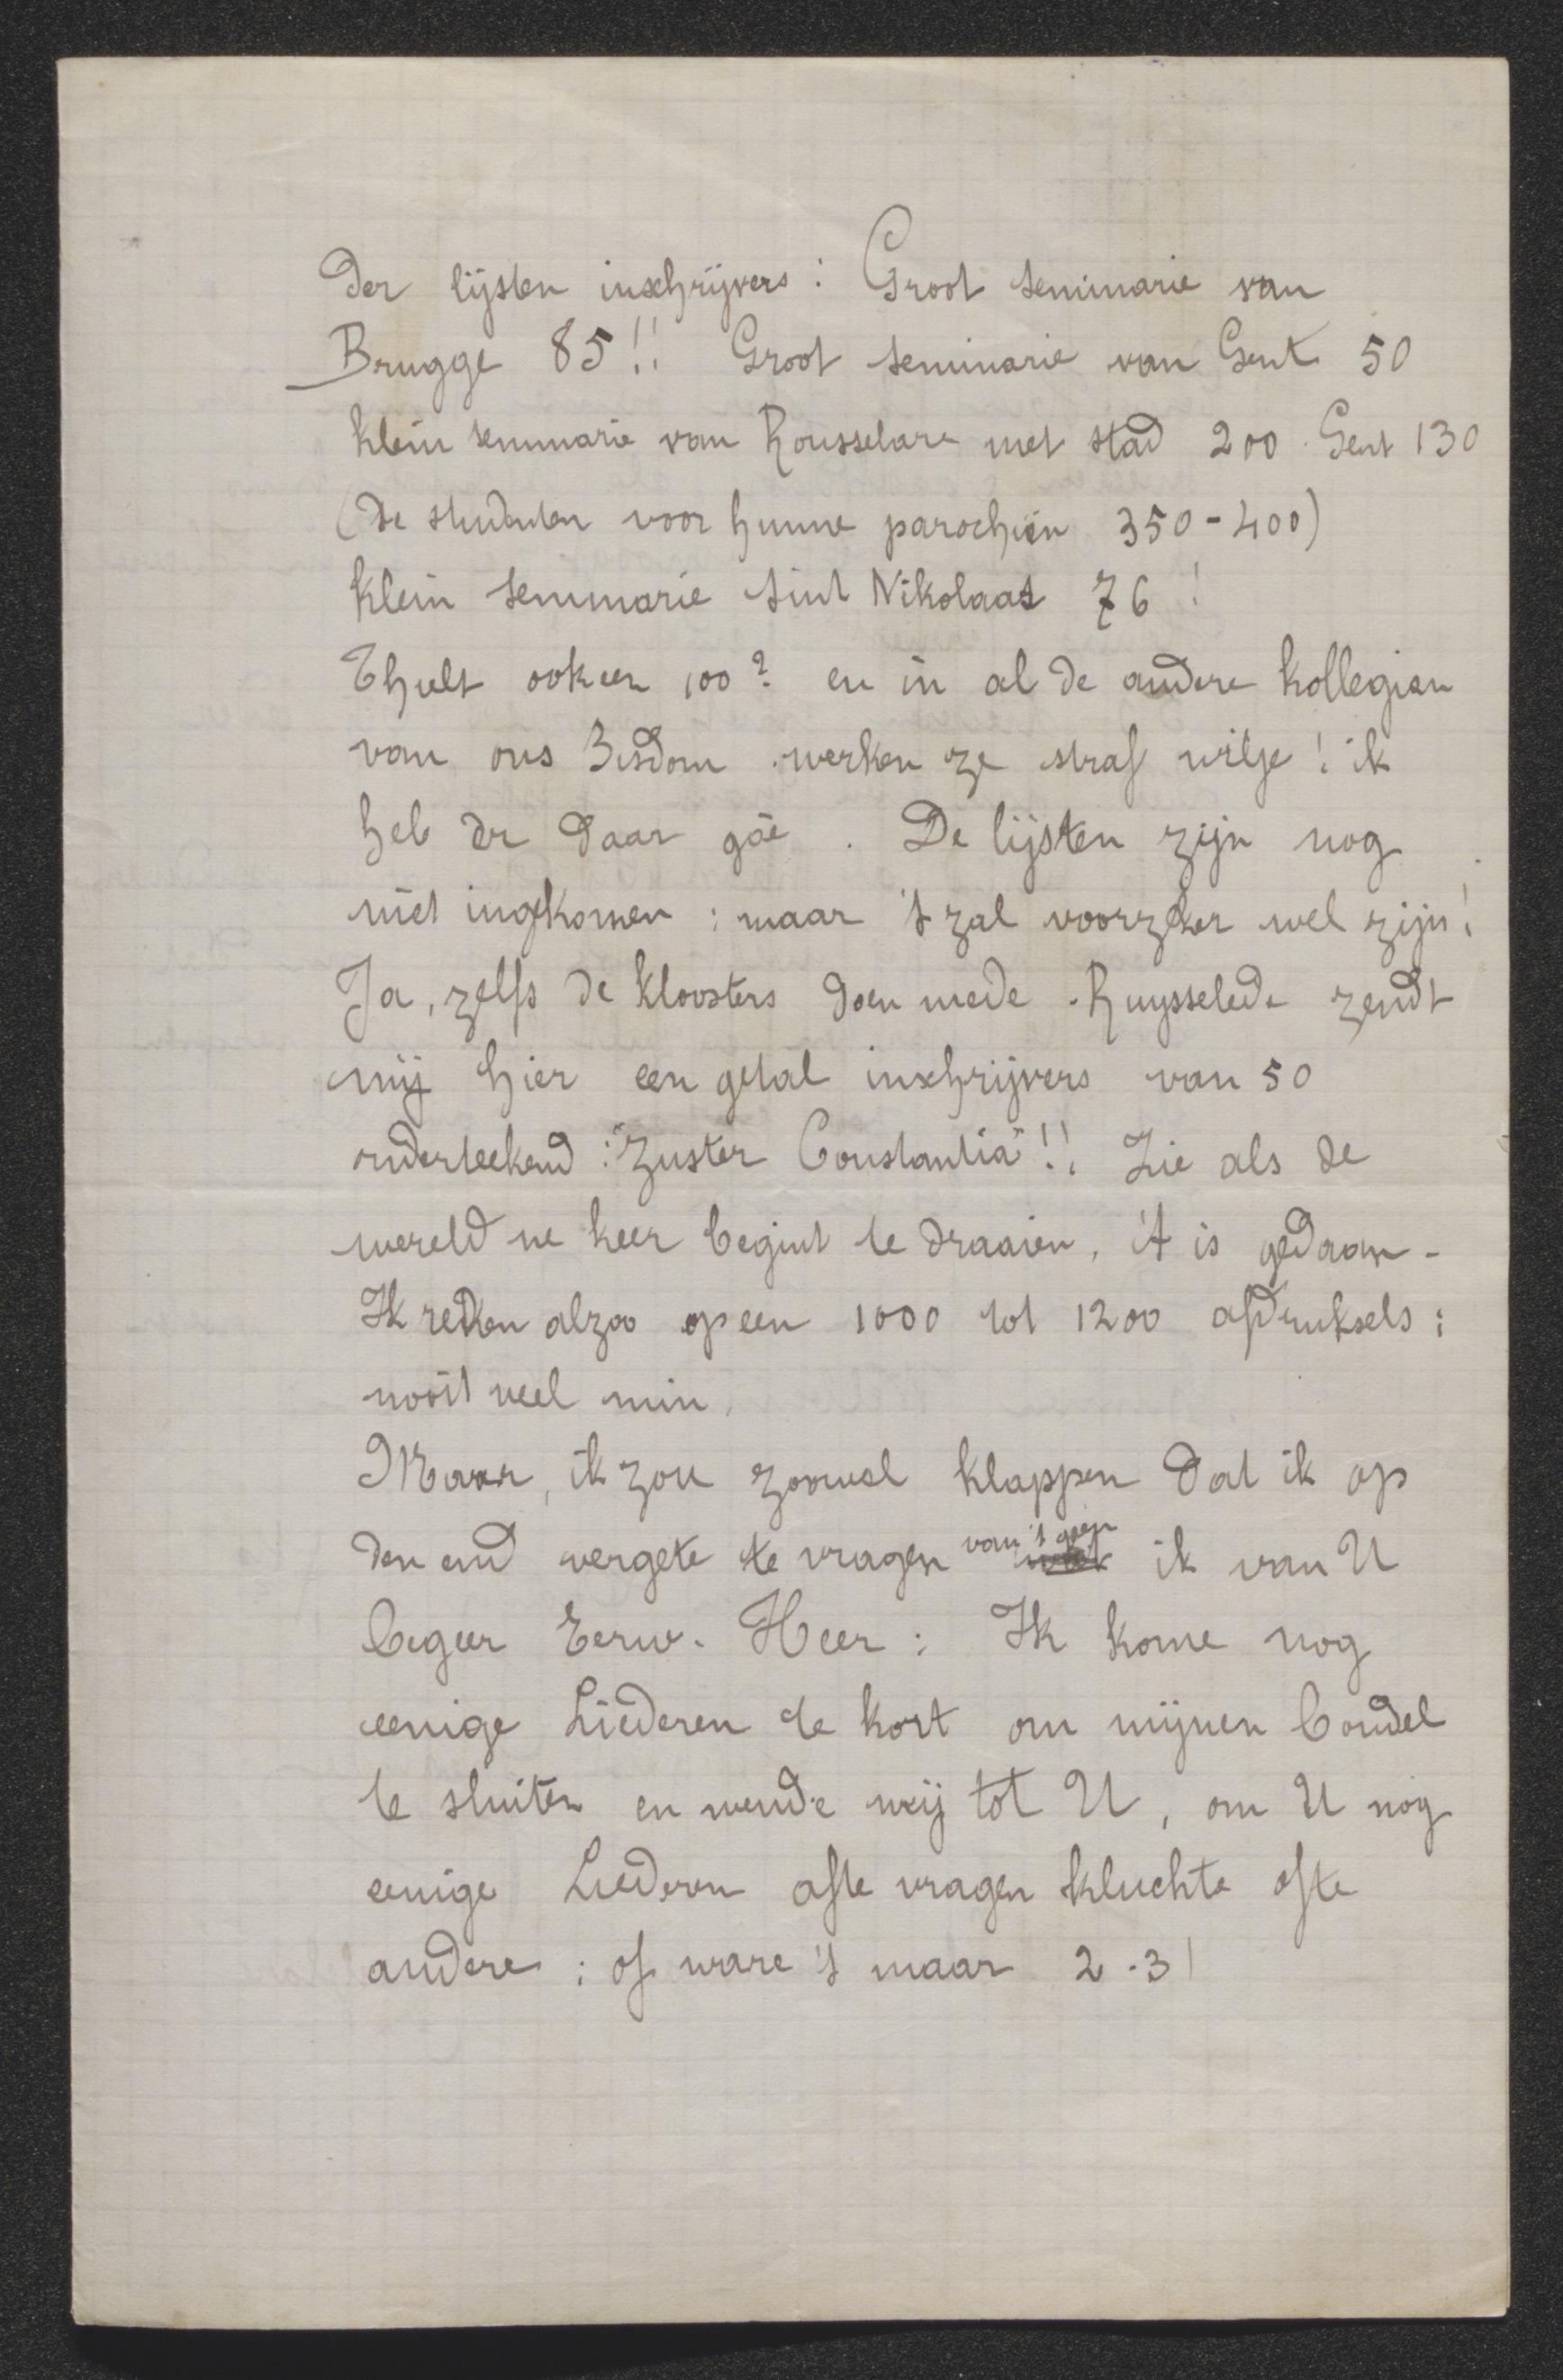 der lijsten inschrijvers : Groot seminarie van
Brugge 85!! Groot seminarie van Gent 50
klein seminarie van Rousselare met stad 200. Gent 130
(de studenten voor hunne parochiën 350-400)
klein seminarie Sint Nikolaas 76!
Thielt ook een 100? en in al de andere kollegien
van ons Bisdom werken ze straf wilje! ik
heb er daar gõe. De lijsten zijn nog
niet ingekomen : maar 't zal voorzeker wel zijn!
Ja, zelfs de kloosters doen mede. Ruysselede zendt
mij hier een getal inschrijvers van 50
onderteekend : "Zuster Constantia"!! Zie als de
wereld ne keer begint te draaien, 't is gedaan -
Ik reken alzoo op een 1000 tot 1200 afdruksels :
nooit veel min.
Maar, ik zou zooveel klappen dat ik op
den end vergete te vragen van 't geen ik van U
begeer Eerw. Heer : Ik kome nog
eenige Liederen te kort om mijnen bondel
te sluiten en wende mij tot U, om U nog
eenige Liederen afte vragen kluchte ofte
andere : of ware 't maar 2-3!